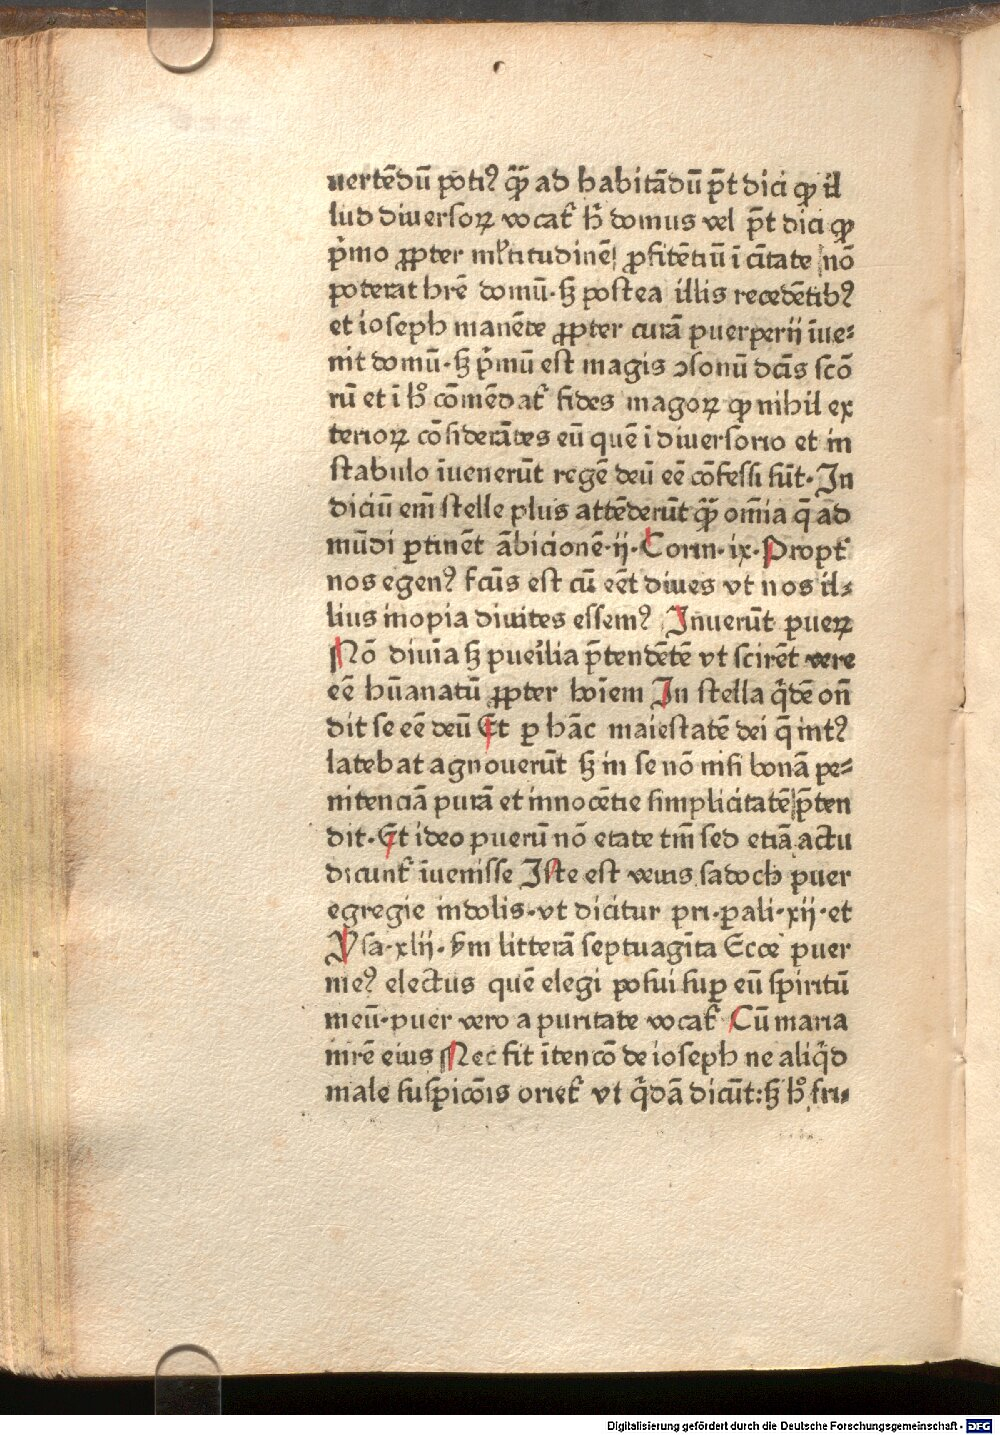 uertēdū potiꝰ qꝫ̄ ad habitādū pn̄t dici qꝫ il
lud diuersoꝝ vocat᷑ hͥ domus vel pn̄t dici qꝫ
pͥmo ꝓpter ml̓titudinē ꝓfitētiū ī ciuitate nō
poterat hr̄e domū·sꝫ postea illis recedētibꝰ
et ioseph manēte ꝓpter curā puerperij īue⸗
nit domū·sꝫ pͥmū est magis ↄsonū dc̄is scō
rū et ī hͦ cōmēdat᷑ fides magoꝝ qꝫ nihil ex
terioꝝ cōsiderātes eū quē ī diuersorio et in
stabulo īuenerūt regē deū eē cōfessi sūt·In
diciū em̄ stelle plus attēderūt qꝫ̄ om̄ia q̄ ad
mūdi ꝑtinēt ābicionē·ij·Corin·ix·Propt᷑
nos egenꝰ fcūs est cū eēt diues vt nos il⸗
lius inopia diuites essemꝰ Inuerūt pueꝝ
Nō diuīa sꝫ puerilia p̄tendētē vt scirēt vere
eē hūanatū ꝓpter hoīem In stella qͥdē oñ
dit se eē deū Et ꝑ hāc maiestatē dei q̄ intꝰ
latebat agnouerūt sꝫ in se nō nisi bonā pe⸗
nitenciā purā et innocētie simplicitatē p̄ten
dit·Et ideo puerū nō etate tm̄ sed etiā actu
dicunt᷑ īuenisse Iste est verus sadoch puer
egregie indolis·vt dicitur pri·ꝑali·xij·et
Ysa·xlij·ẜm litterā septuagīta Ecce puer
meꝰ electus quē elegi posui suꝑ eū spiritū
meū·puer vero a puritate vocat᷑ Cū maria
mr̄e eius Nec fit ītencō de ioseph ne aliqͥd
male suspicōis oriet᷑ vt qͥdā dicūt:sꝫ hͦ fri⸗
Digitalisierung gefördert durch die Deutsche Forschungsgemeinschaft - DFG